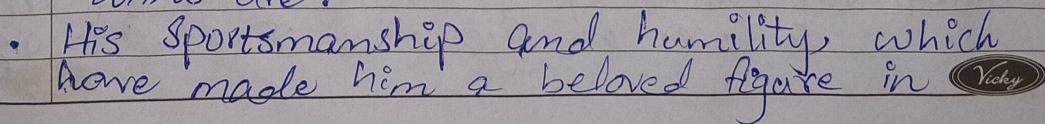 • His Sportsmanship and humility, which
have made him a beloved figure in Vicky